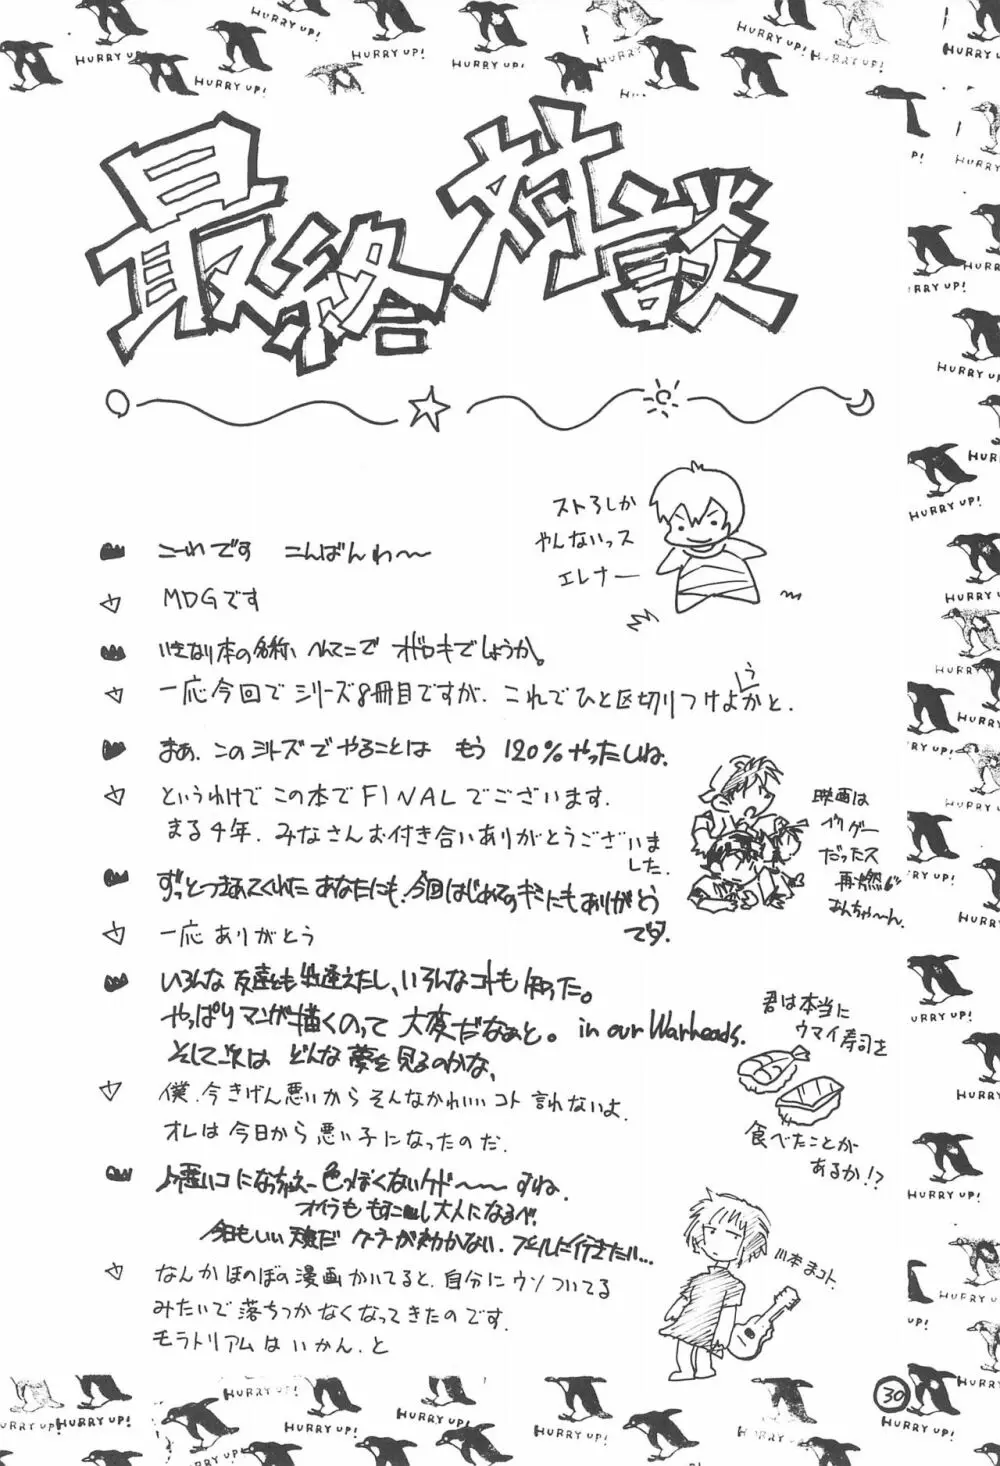 最終対談
ストろしか
やんないっス
エレナー
こーれです こんばんわ〜
MDGです
いきなり本の名称、へんてこで オドロキでしょうか。
一応今回でシリーズ8冊目ですが、これでひと区切りつけようかと.
まあ、このシリーズでやることは もう 120%やったしね.
というわけで この本でFINALでございます.
まる4年、みなさんお付き合いありがとうございました.
映画は
ベリグー
だったス
再燃
あんちゃ〜ん.
ずっとつきあってくれた あなたにも、今回はじめてのキミにもありがとうです.
一応 ありがとう
いろんな 友達とも出逢えたし、いろんなコトも知った。
やっぱりマンガ描くのって 大変だなぁと。 in our Warheads.
そして次は どんな夢を見るのかな、
君は本当に
ウマイ寿司を
食べたことが
あるか!?
僕、今きげん悪いから そんなかわいいコト 言れないよ.
オレは今日から悪い子になったのだ.
悪いコになっちゃえー 色っぽくないケド〜〜 すね.
オイラも もすこし大人になるべ.
今日もいい天気だ クーラーが効かない. プールに行きたい…
川本まコト.
なんかほのぼの漫画かいてると、自分にウソついてる
みたいで 落ちつかなくなってきたのです.
モラトリアムは いかん、と
30
HURRY UP!